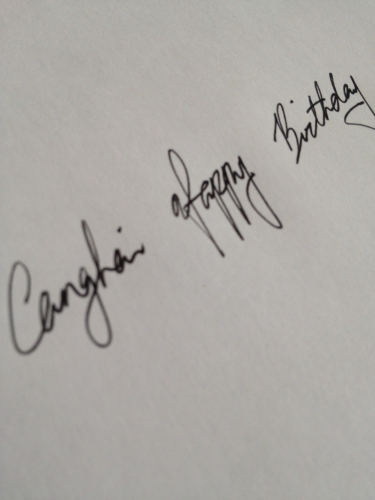 Canghai Happy Birthday